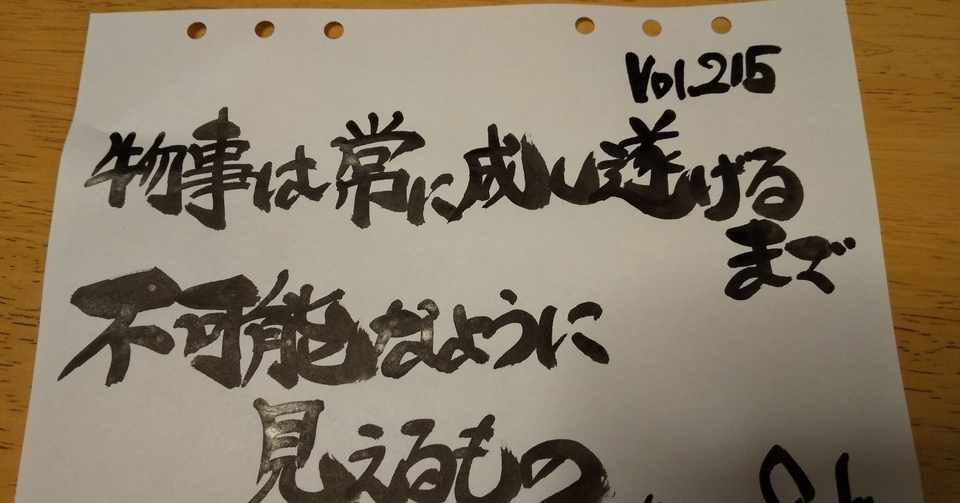 Vol.215
物事は常に成し遂げる
まで
不可能なように
見えるもの